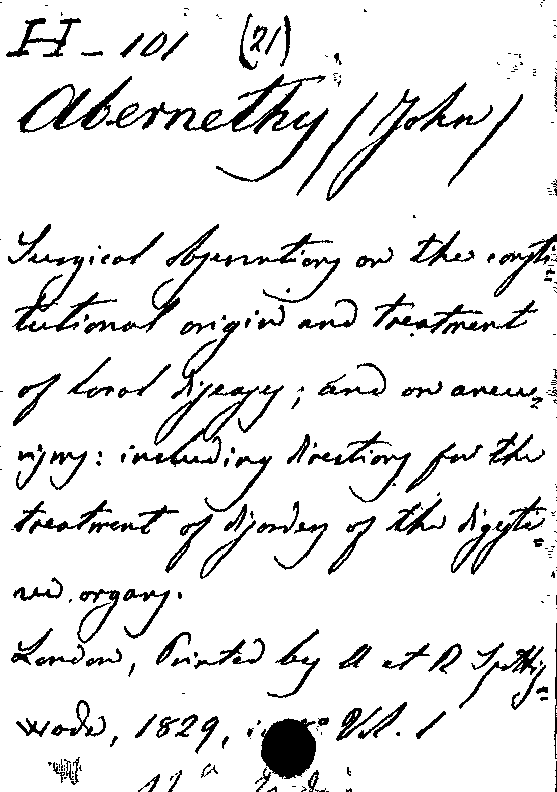 H - 101 (21)
Abernethy (John)
Surgical observations on the consti
tutional origin and treatment
of local diseases; and on aneu=
risms: including directions for the
treatment of disorders of the digesti=
ve organs.
London, Printed by A et R Spottis=
wode, 1829, Vol. 1